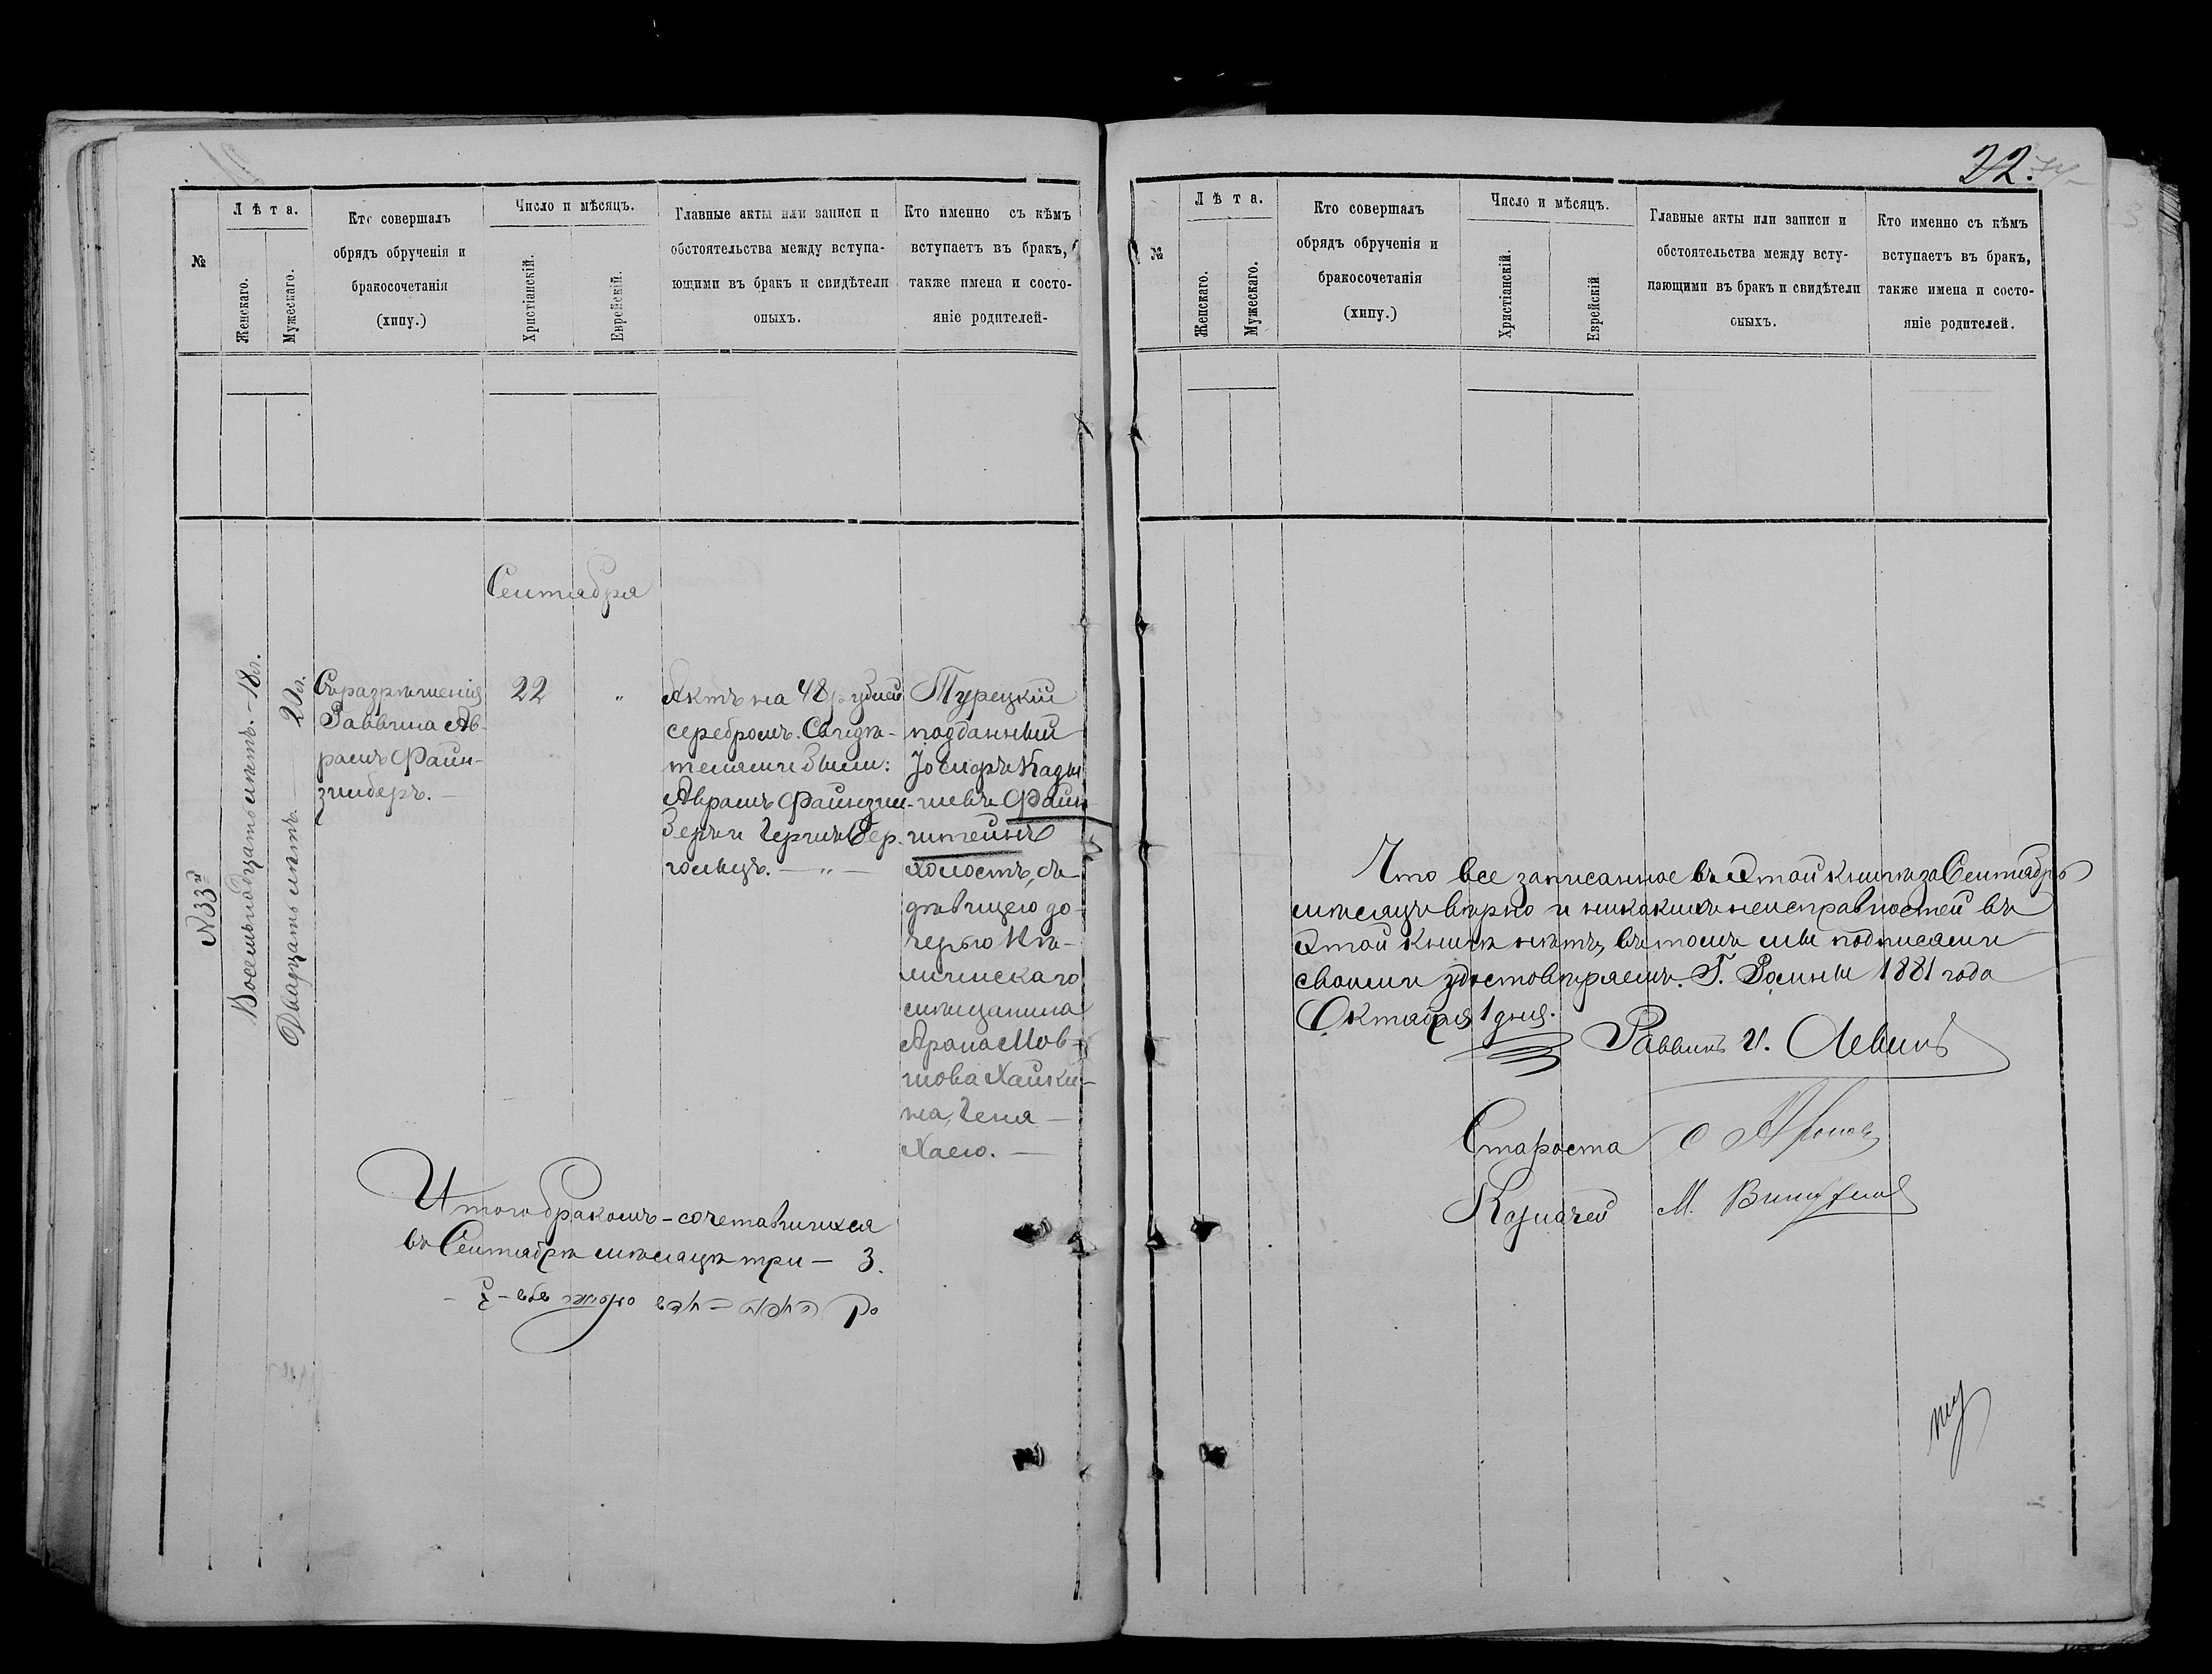 №
Лѣта.
Женскаго.
Мужескаго.
Кто совершалъ
обрядъ обрученія и
бракосочетанія
(хипу.)
Число и мѣсяцъ.
Христіанскій.
Еврейскій.
Главные акты или записи и
обстоятельства между вступа-
ющими въ бракъ и свидѣтели
оныхъ.
Кто именно съ кѣмъ
вступаетъ въ бракъ,
также имена и состо-
яніе родителей-
Сентября
N 33й
Восемьнадцать лѣтъ. — 18 л.
Двадцать лѣтъ. — 20 л.
Съ разрѣшенія
Раввина Ав-
рамъ Файн-
зильберъ. —
22
"
Актъ на 48 рублей
серебромъ. Свидѣ-
телями были:
Аврамъ Файнзил-
беръ и Гершъ
Турецкій
подданный
Іосифъ
Файн-
штейнъ
холостъ, съ
дѣвицею до-
черью
мѣщанина
Арана Мов-
шова Хайки-
на, Геня —
Хаею. —
Итого бракомъ-сочетавшихся
въ Сентябрѣ мѣсяцѣ три — 3.
22.
№
Лѣта.
Женскаго.
Мужескаго.
Кто совершалъ
обрядъ обрученія и
бракосочетанія
(хипу.)
Число и мѣсяцъ.
Христіанскій.
Еврейскій
Главные акты или записи и
обстоятельства между всту-
пающими въ бракъ и свидѣтели
оныхъ.
Кто именно съ кѣмъ
вступаетъ въ бракъ,
также имена и состо-
яніе родителей.
Что все записанное въ этой книгѣ за Сентябрь
мѣсяцъ вѣрно и никакихъ неисправностей въ
этой книгѣ нѣтъ, въ томъ мы подписями
своими удостовѣряемъ. Г. Ромны 1881 года
Октября 1 дня.
Раввинъ И. Левинъ
Староста Аронов
Казначей М.